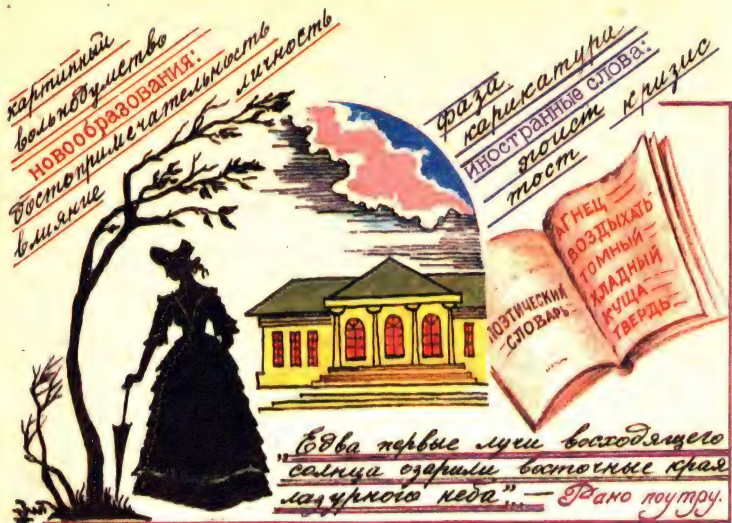 картинный
вольнодумство
новообразования:
достопримечательность
влияние
личность
фаза
карикатура
иностранные слова:
эгоист
тост
кризис
ПОЭТИЧЕСКИЙ
СЛОВАРЬ
АГНЕЦ
ВОЗДЫХАТЬ
ТОМНЫЙ
ХЛАДНЫЙ
КУЩА
ТВЕРДЬ
„Едва первые лучи восходящего
солнца озарили восточные края
лазурного неба” — Рано поутру.